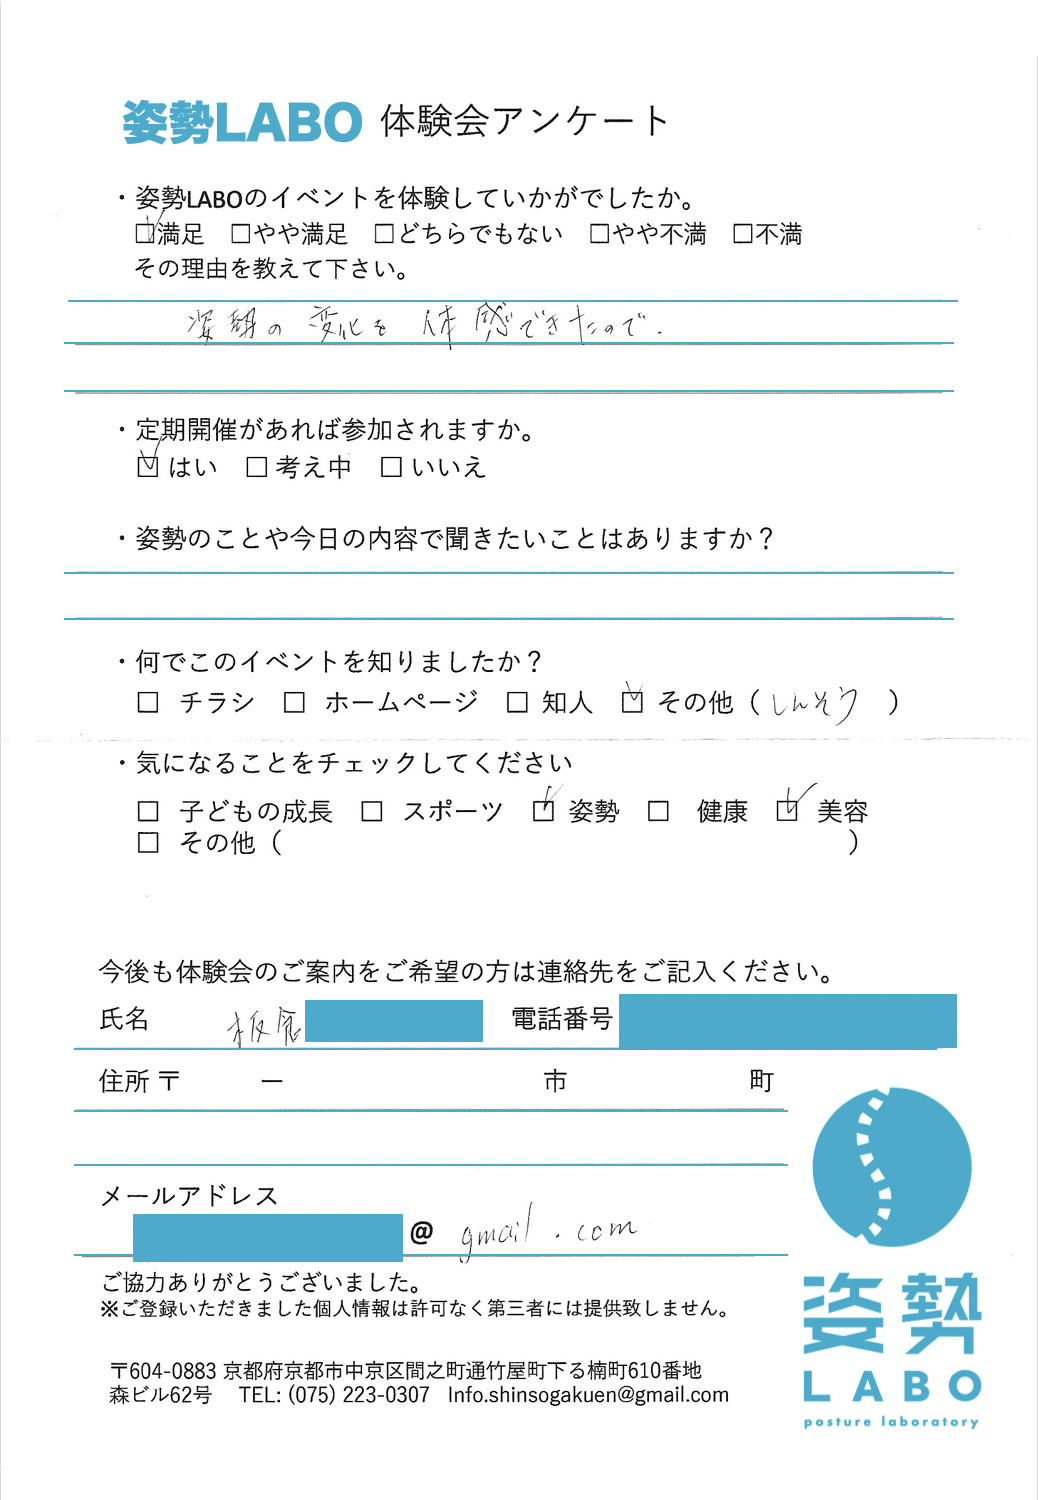 姿勢LABO 体験会アンケート
・姿勢LABOのイベントを体験していかがでしたか。
☑満足 □やや満足 □どちらでもない □やや不満 □不満
その理由を教えて下さい。
姿勢の 変化を 体感できたので.
・定期開催があれば参加されますか。
☑ はい □ 考え中 □ いいえ
・姿勢のことや今日の内容で聞きたいことはありますか？
・何でこのイベントを知りましたか？
□ チラシ □ ホームページ □ 知人 ☑ その他（しんそう）
・気になることをチェックしてください
□ 子どもの成長 □ スポーツ ☑ 姿勢 □ 健康 ☑ 美容
□ その他（ ）
今後も体験会のご案内をご希望の方は連絡先をご記入ください。
氏名 板倉 電話番号
住所 〒 ー 市 町
メールアドレス
@ gmail.com
ご協力ありがとうございました。
※ご登録いただきました個人情報は許可なく第三者には提供致しません。
〒604-0883 京都府京都市中京区間之町通竹屋町下る楠町610番地
森ビル62号 TEL: (075) 223-0307 Info.shinsogakuen@gmail.com
姿勢
LABO
posture laboratory